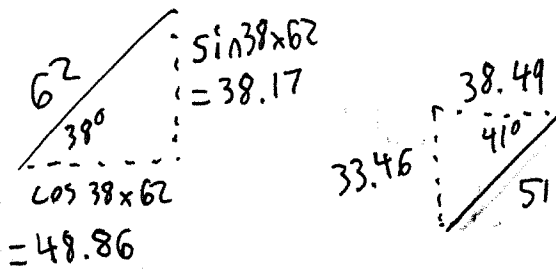 62
38°
sin38x62
=38.17
cos 38x62
=48.86
38.49
41°
33.46
51